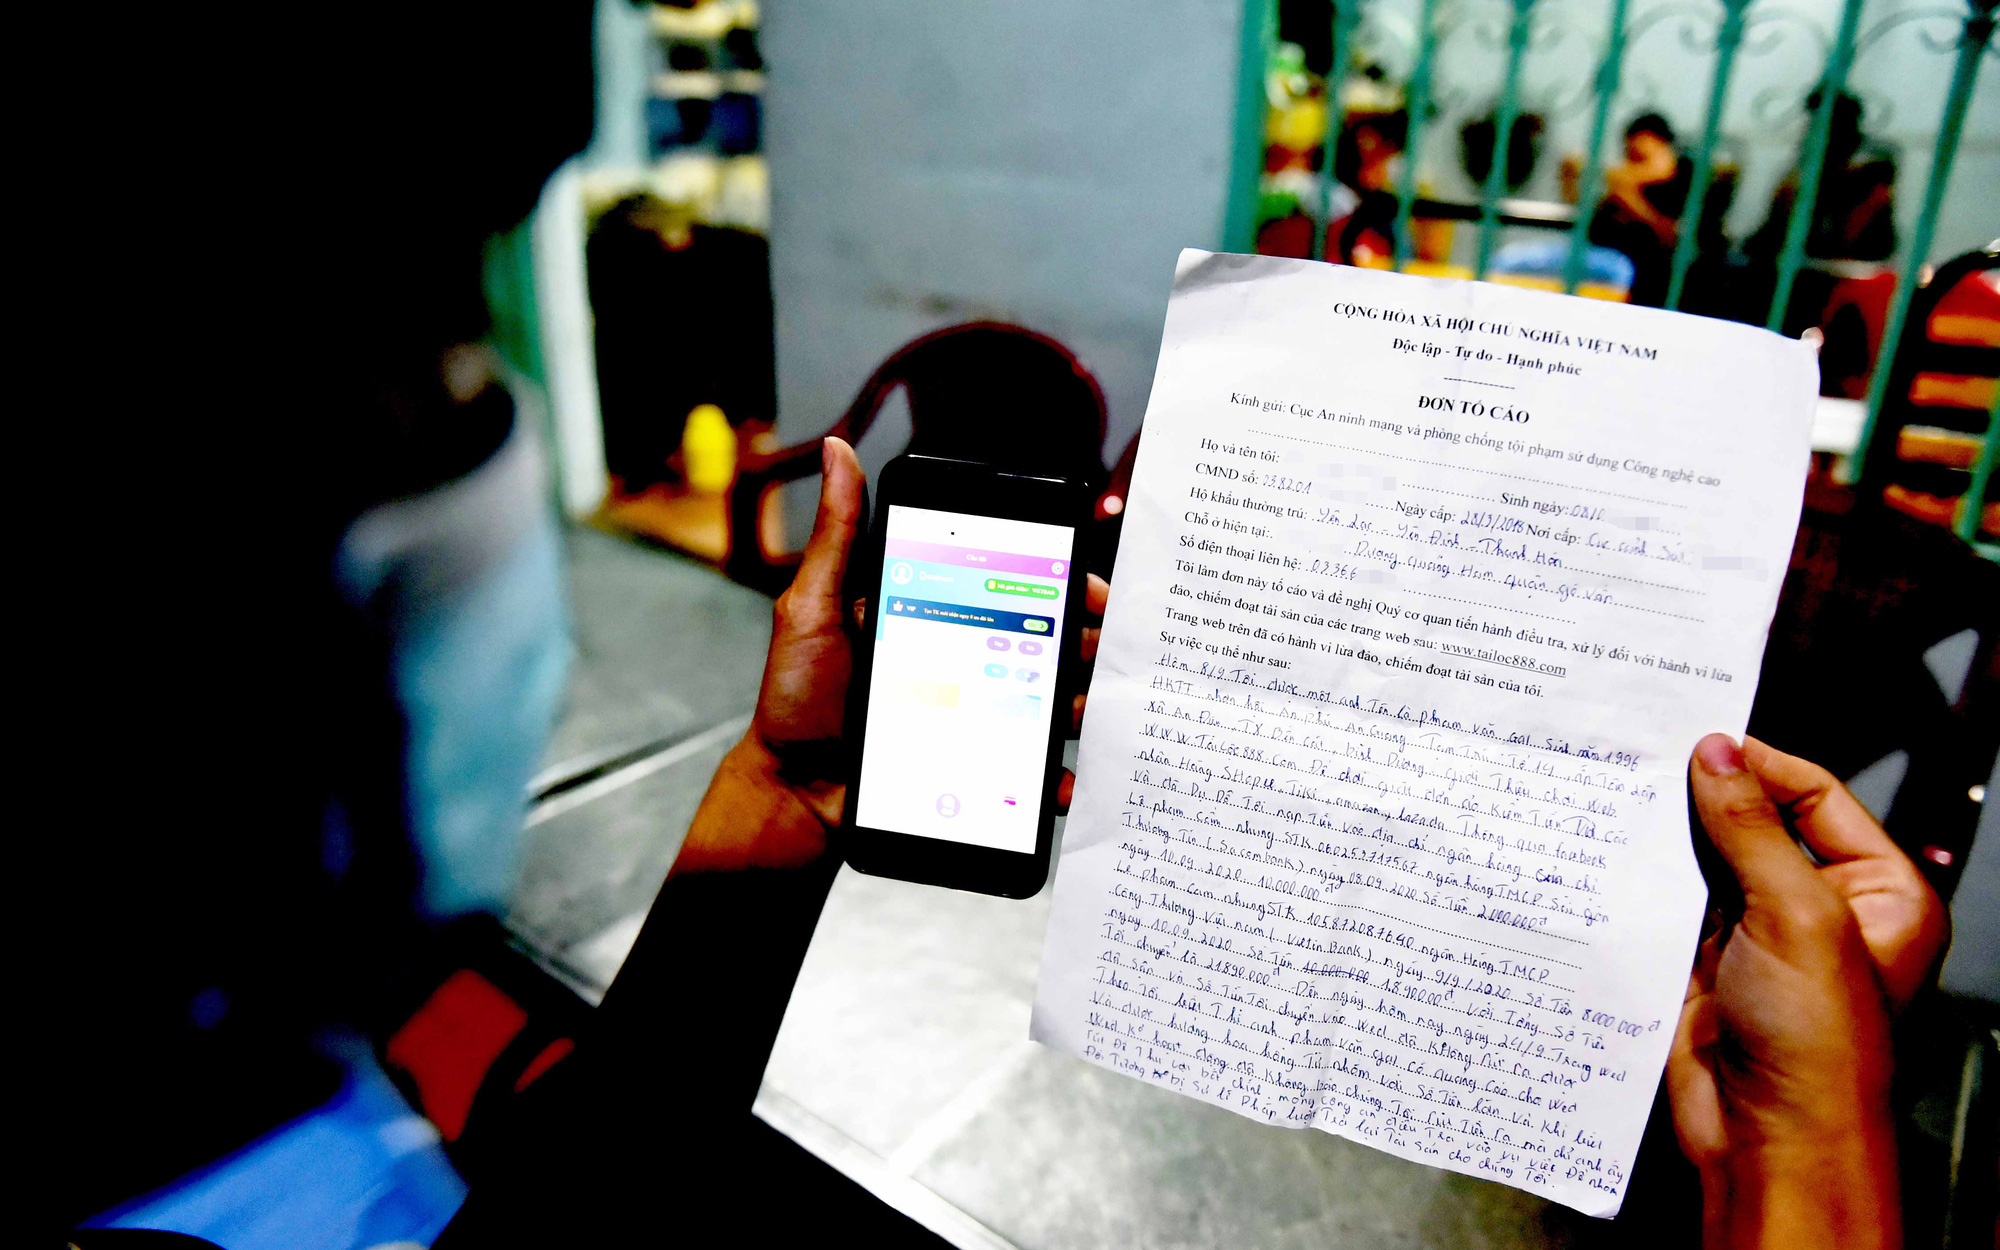 CỘNG HÒA XÃ HỘI CHỦ NGHĨA VIỆT NAM
Độc lập - Tự do - Hạnh phúc
ĐƠN TỐ CÁO
Kính gửi: Cục An ninh mạng và phòng chống tội phạm sử dụng Công nghệ cao
Họ và tên tôi: Sinh ngày: 08/0
CMND số: 038201 Ngày cấp: 28/9/2018 Nơi cấp: Cục cảnh Sát
Hộ khẩu thường trú: Yên Lạc - Yên Định - Thanh Hóa
Chỗ ở hiện tại: Dương quảng Hàm quận gò vấp
Số điện thoại liên hệ: 0
Tôi làm đơn này tố cáo và đề nghị Quý cơ quan tiến hành điều tra, xử lý đối với hành vi lừa
đảo, chiếm đoạt tài sản của các trang web sau: www.tailoc888.com
Trang web trên đã có hành vi lừa đảo, chiếm đoạt tài sản của tôi.
Sự việc cụ thể như sau:
Hôm 8/9 Tôi được một anh Tên là phạm văn Gal Sinh năm 1996
HKTT An phú An Giang Tạm Trú Tổ 14, ấp Tân
xã An Điền TX Bến cát, bình Dương giới Thiệu chơi Web
WWW Tailoc888.com Để chơi giật đơn ảo kiếm Tiền Từ các
nhãn Hàng SHopee, Tiki, amazon, lazada Thông qua facebook
và đã Dụ Dỗ Tôi nạp Tiền vào địa chỉ ngân hàng chị
Lê phạm cẩm nhung STK ngân hàng TMCP Sài gòn
Thương Tín (Sacombank) ngày 08.09.2020 Số Tiền 2.000.000đ
ngày 10.09.2020 10.000.000đ
Lê phạm cẩm nhung STK 105872087640 ngân Hàng TMCP
Công Thương Việt nam (Viettin Bank) ngày 9/9/2020 Số Tiền 8.000.000đ
ngày 10.09.2020 Số Tiền 1.890.000đ với Tổng Số Tiền
Tôi chuyển là 21.890.000đ Đến ngày hôm nay ngày 24/9 Trang wed
đã Sập và Số Tiền Tôi chuyển vào wed đã Không rút ra được
Theo Tôi biết Thì anh phạm văn gal có quảng cáo cho wed
và được hưởng hoa hồng Từ nhóm với Số Tiền lớn và khi biết
wed k hoạt động đã không báo chúng Tôi rút Tiền ra mà chỉ anh ấy
rút Để Thu lợi bất chính. mong công an điều Tra vào vụ việc Để nhóm
Đối Tượng bị Sử lí Pháp luật Trả lại Tài Sản cho chúng Tôi.
VIP